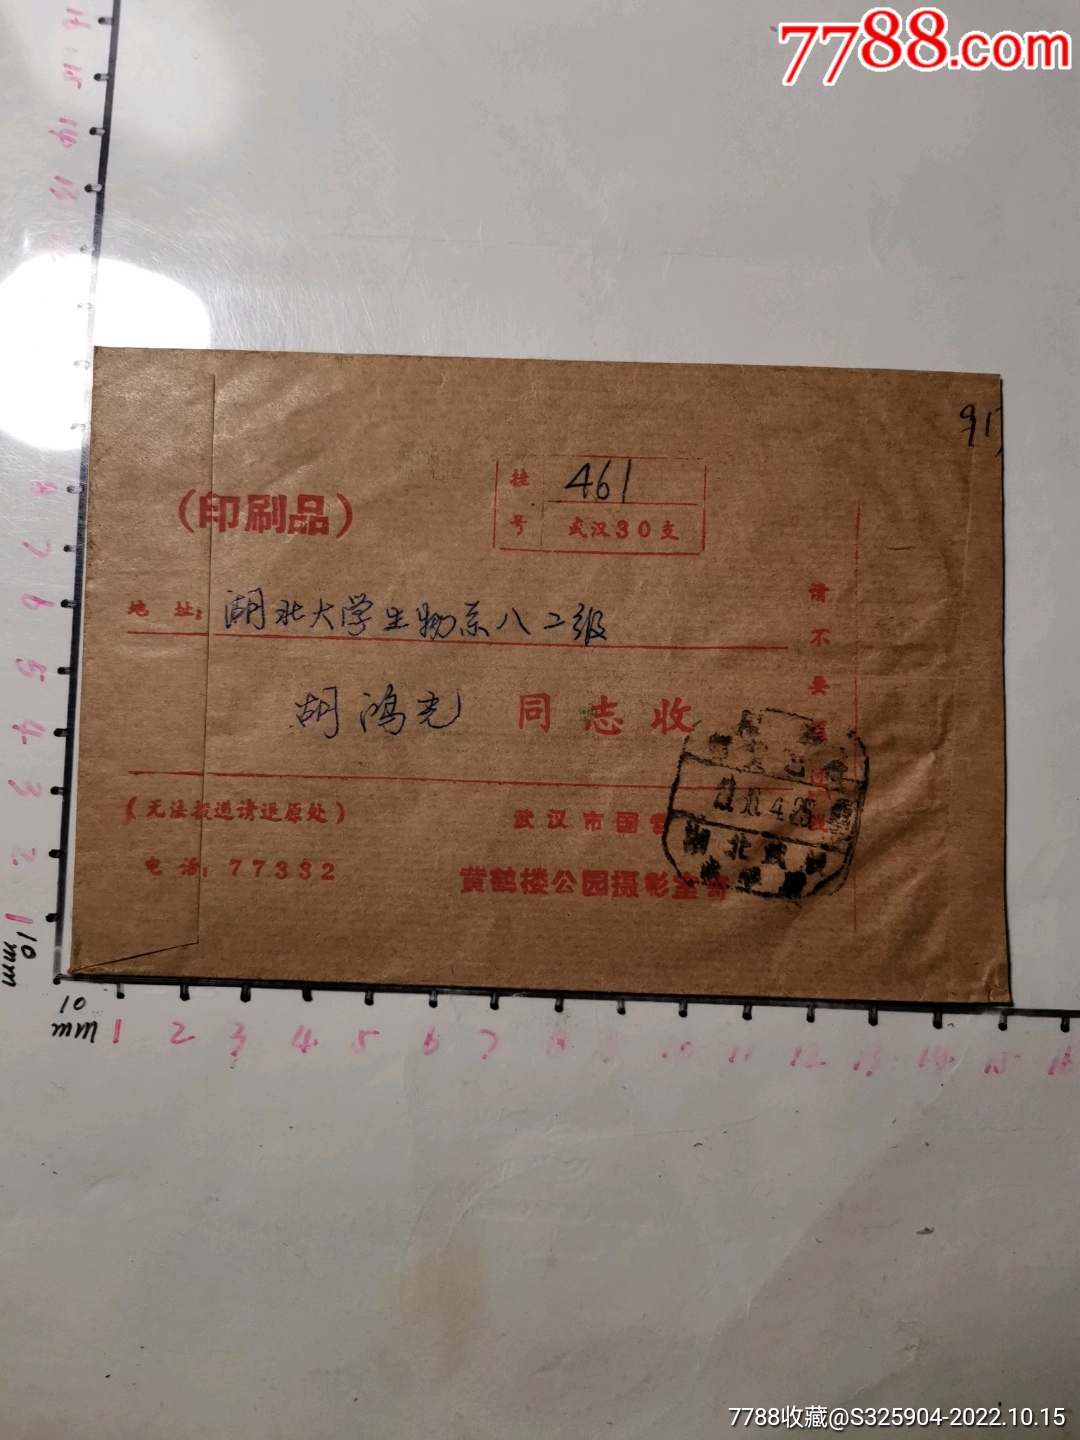 7788.com
91
挂号
461
武汉30支
(印刷品)
地 址: 湖北大学生物系八二级
请不要
胡鸿光 同志收
(无法投递请退原处)
武汉市国营
电话: 77332
黄鹤楼公园摄影室寄
湖北武
10 mm
1 2 3 4 5 6 7 8 9 10 11 12 13 14 15 16
10 mm
1 2 3 4 5 6 7 8
7788收藏@S325904-2022.10.15